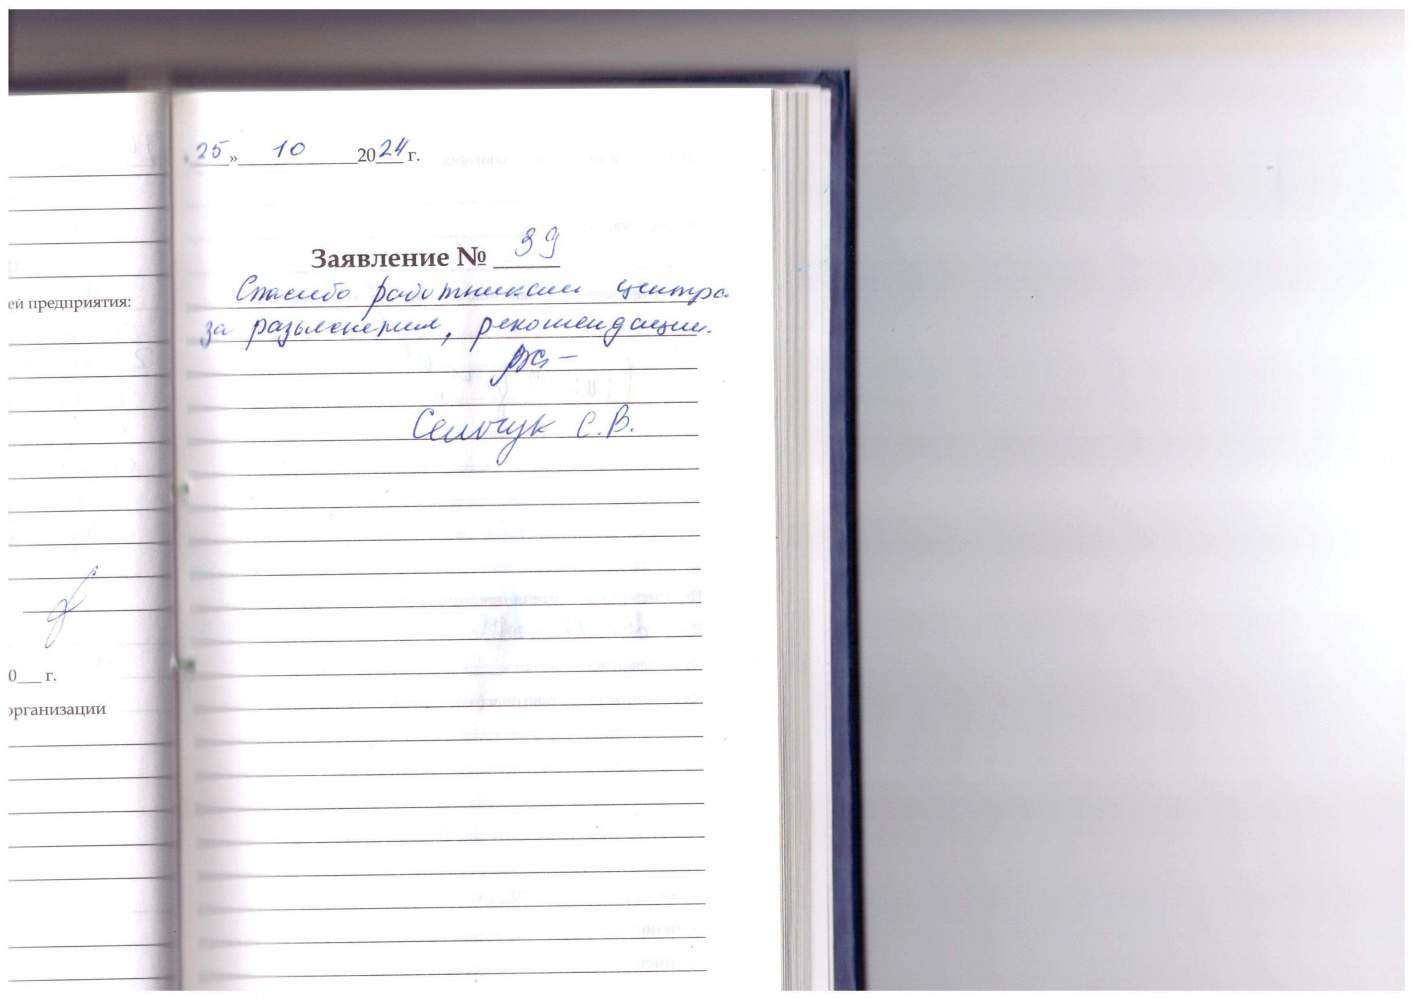 25 » 10 2024 г.
Заявление № 39
Спасибо работникам центра
за разъяснения, рекомендации.
С.В.
ей предприятия:
0___ г.
организации